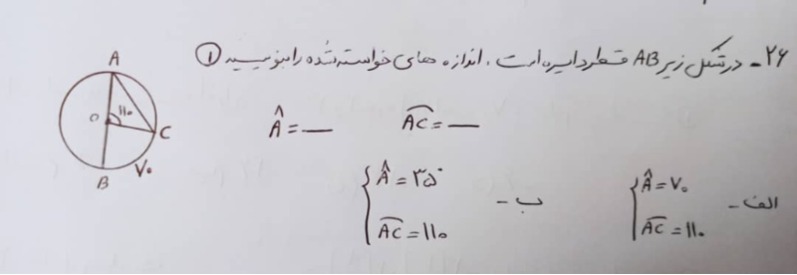 ۲۶- در شکل زیر AB قطر دایره است. اندازه های خواسته شده را بنویسید ①
A
O ۱۱۰
C
B ۷۰
Â = — AC = —
الف - Â = ۷۰ ب - Â = ۳۵°
AC = ۱۱۰ AC = ۱۱۰